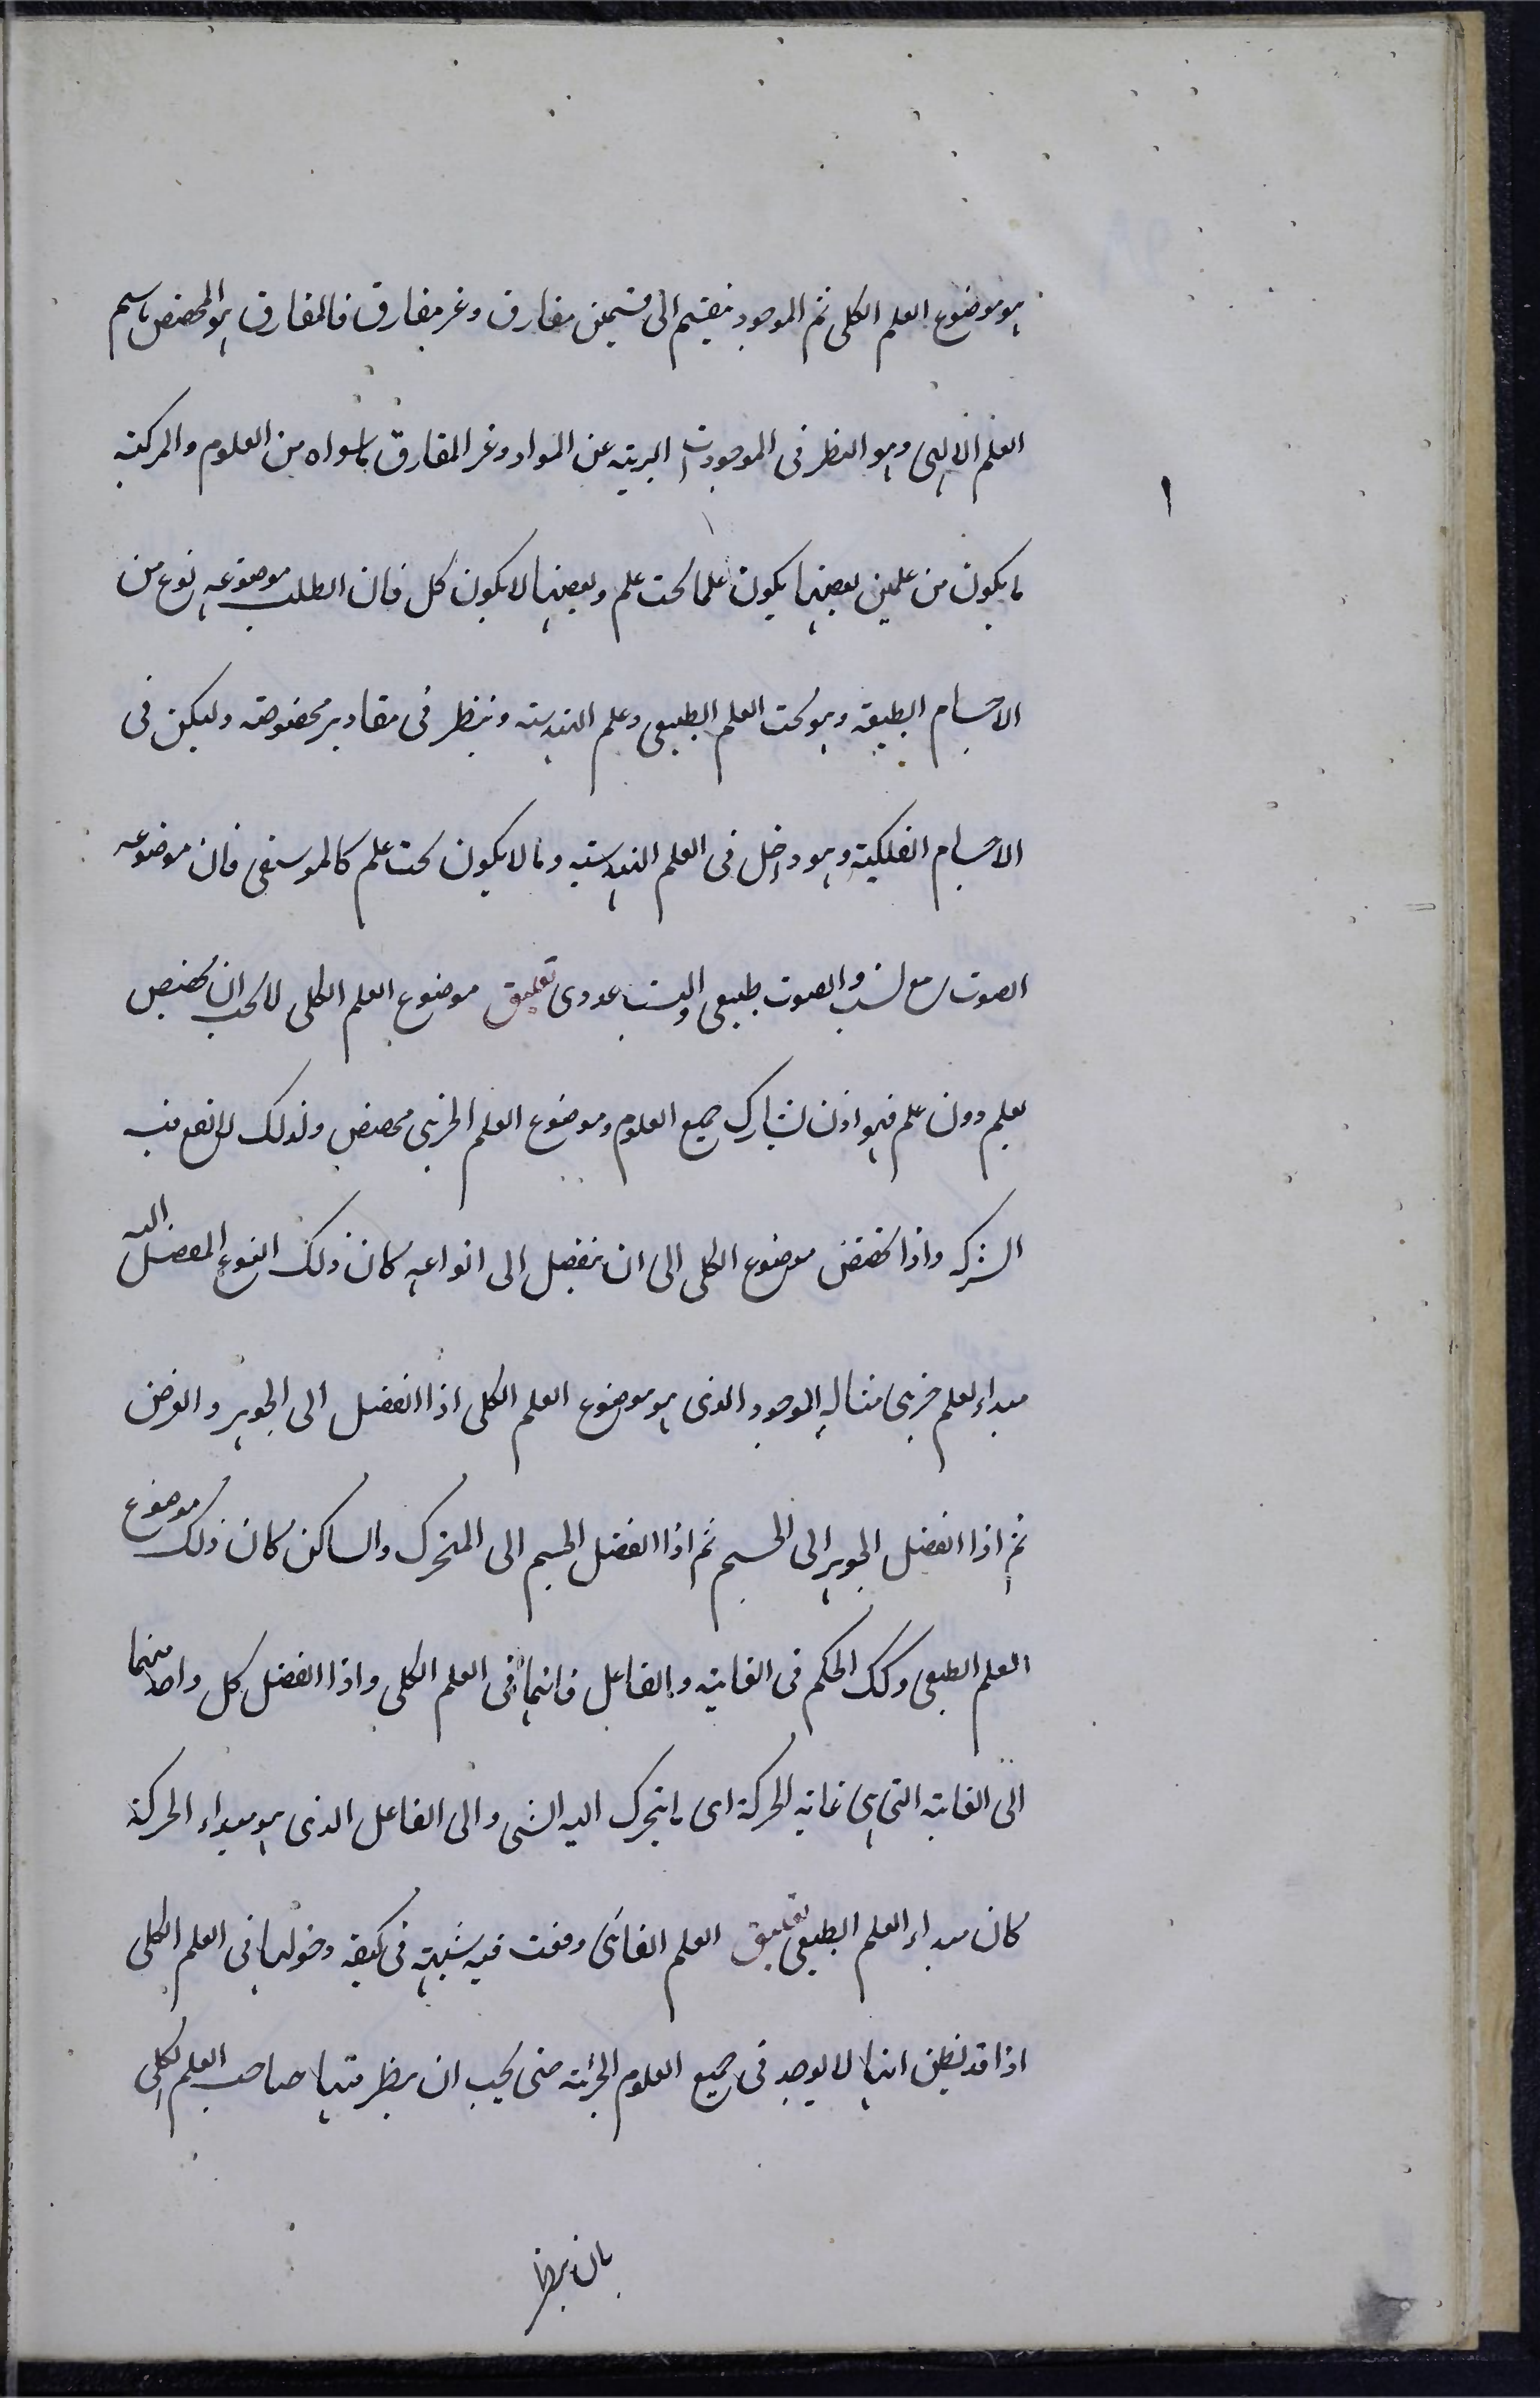 هو موضوع العلم الكلى ثم الموجود ينقسم الى قسمين مفارق وغير مفارق فالمفارق هو المختص باسم
العلم الالهى وهو النظر فى الموجودات البرية عن المواد وغير المفارق ما سواه من العلوم والمركبة
ما يكون من علمين بعضها يكون علما تحت علم وبعضها لا يكون كل فان الطلب موضوعه نوع من
الاجسام الطبيعة وهو تحت العلم الطبيعى وعلم الهندسة وينظر فى مقادير مخصوصة وليكن فى
الاجسام الفلكية وهو داخل فى العلم الهندسية وما لا يكون تحت علم كالموسيقى فان موضوعه
الصوت مع نسب والصوت طبيعى والنسب عددى تعليق موضوع العلم الكلى لا يجب ان يختص
بعلم دون علم فهو اذن يشارك جميع العلوم وموضوع العلم الجزئى مختص ولذلك لا يقع فيه
الشركة واذا تخصص موضوع الكلى الى ان ينفصل الى انواعه كان ذلك النوع المفصل اليه
مبداء لعلم جزئى مثاله الموجود الذى هو موضوع العلم الكلى اذا انفصل الى الجوهر والعرض
ثم اذا انفصل الجوهر الى الجسم ثم اذا انفصل الجسم الى المتحرك والساكن كان ذلك موضوع
العلم الطبعى وكك الحكم فى الغاية والفاعل فانهما فى العلم الكلى واذا انفصل كل واحد منهما
الى الغاية التى هى غاية الحركة اى ما يتحرك اليه الشى والى الفاعل الذى هو مبداء الحركة
كان مبداء العلم الطبيعى تعليق العلم الغائى وقعت فيه شبهة فى كيفية دخولها فى العلم الكلى
اذا قد يظن انها لا يوجد فى جميع العلوم الجزئية حتى يجب ان ينظر فيها صاحب العلم الكلى
بان برها